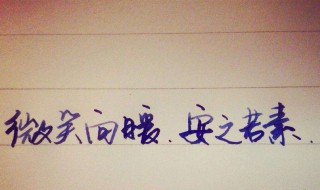 微笑向暖.安之若素.